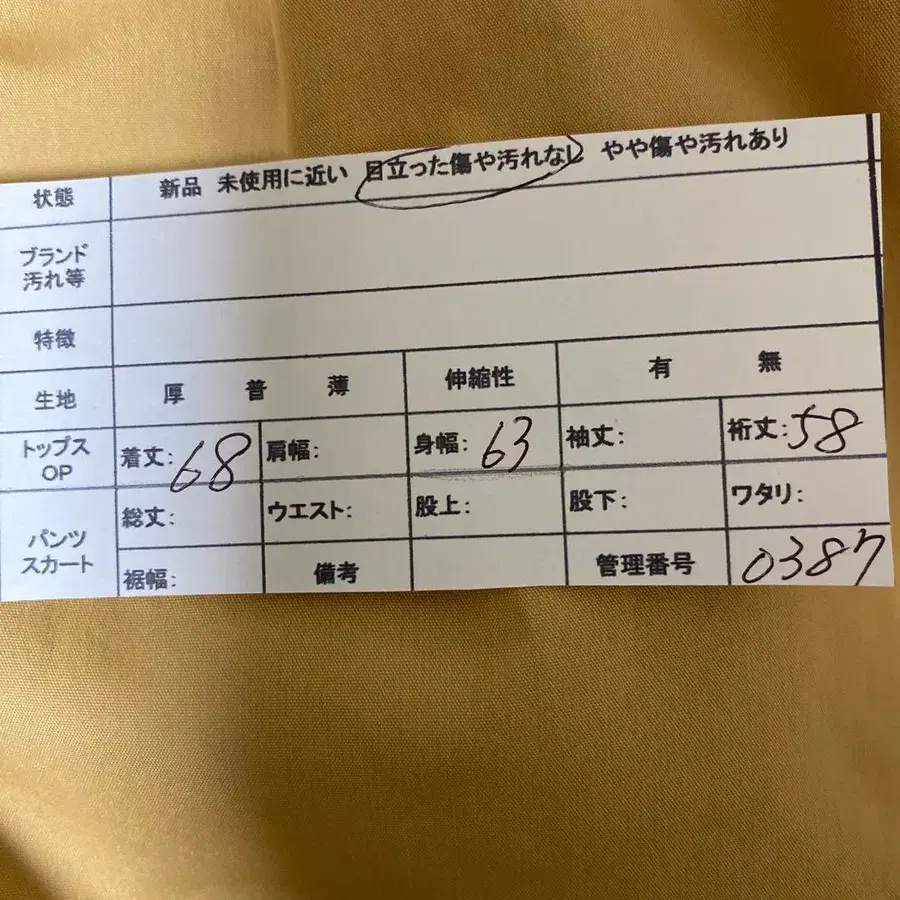 状態 新品 未使用に近い 目立った傷や汚れなし やや傷や汚れあり
ブランド
汚れ等
特徴
生地 厚 普 薄 伸縮性 有 無
トップス
OP
着丈:68 肩幅: 身幅:63 袖丈: 裄丈:58
パンツ
スカート
総丈: ウエスト: 股上: 股下: ワタリ:
裾幅: 備考 管理番号 0387